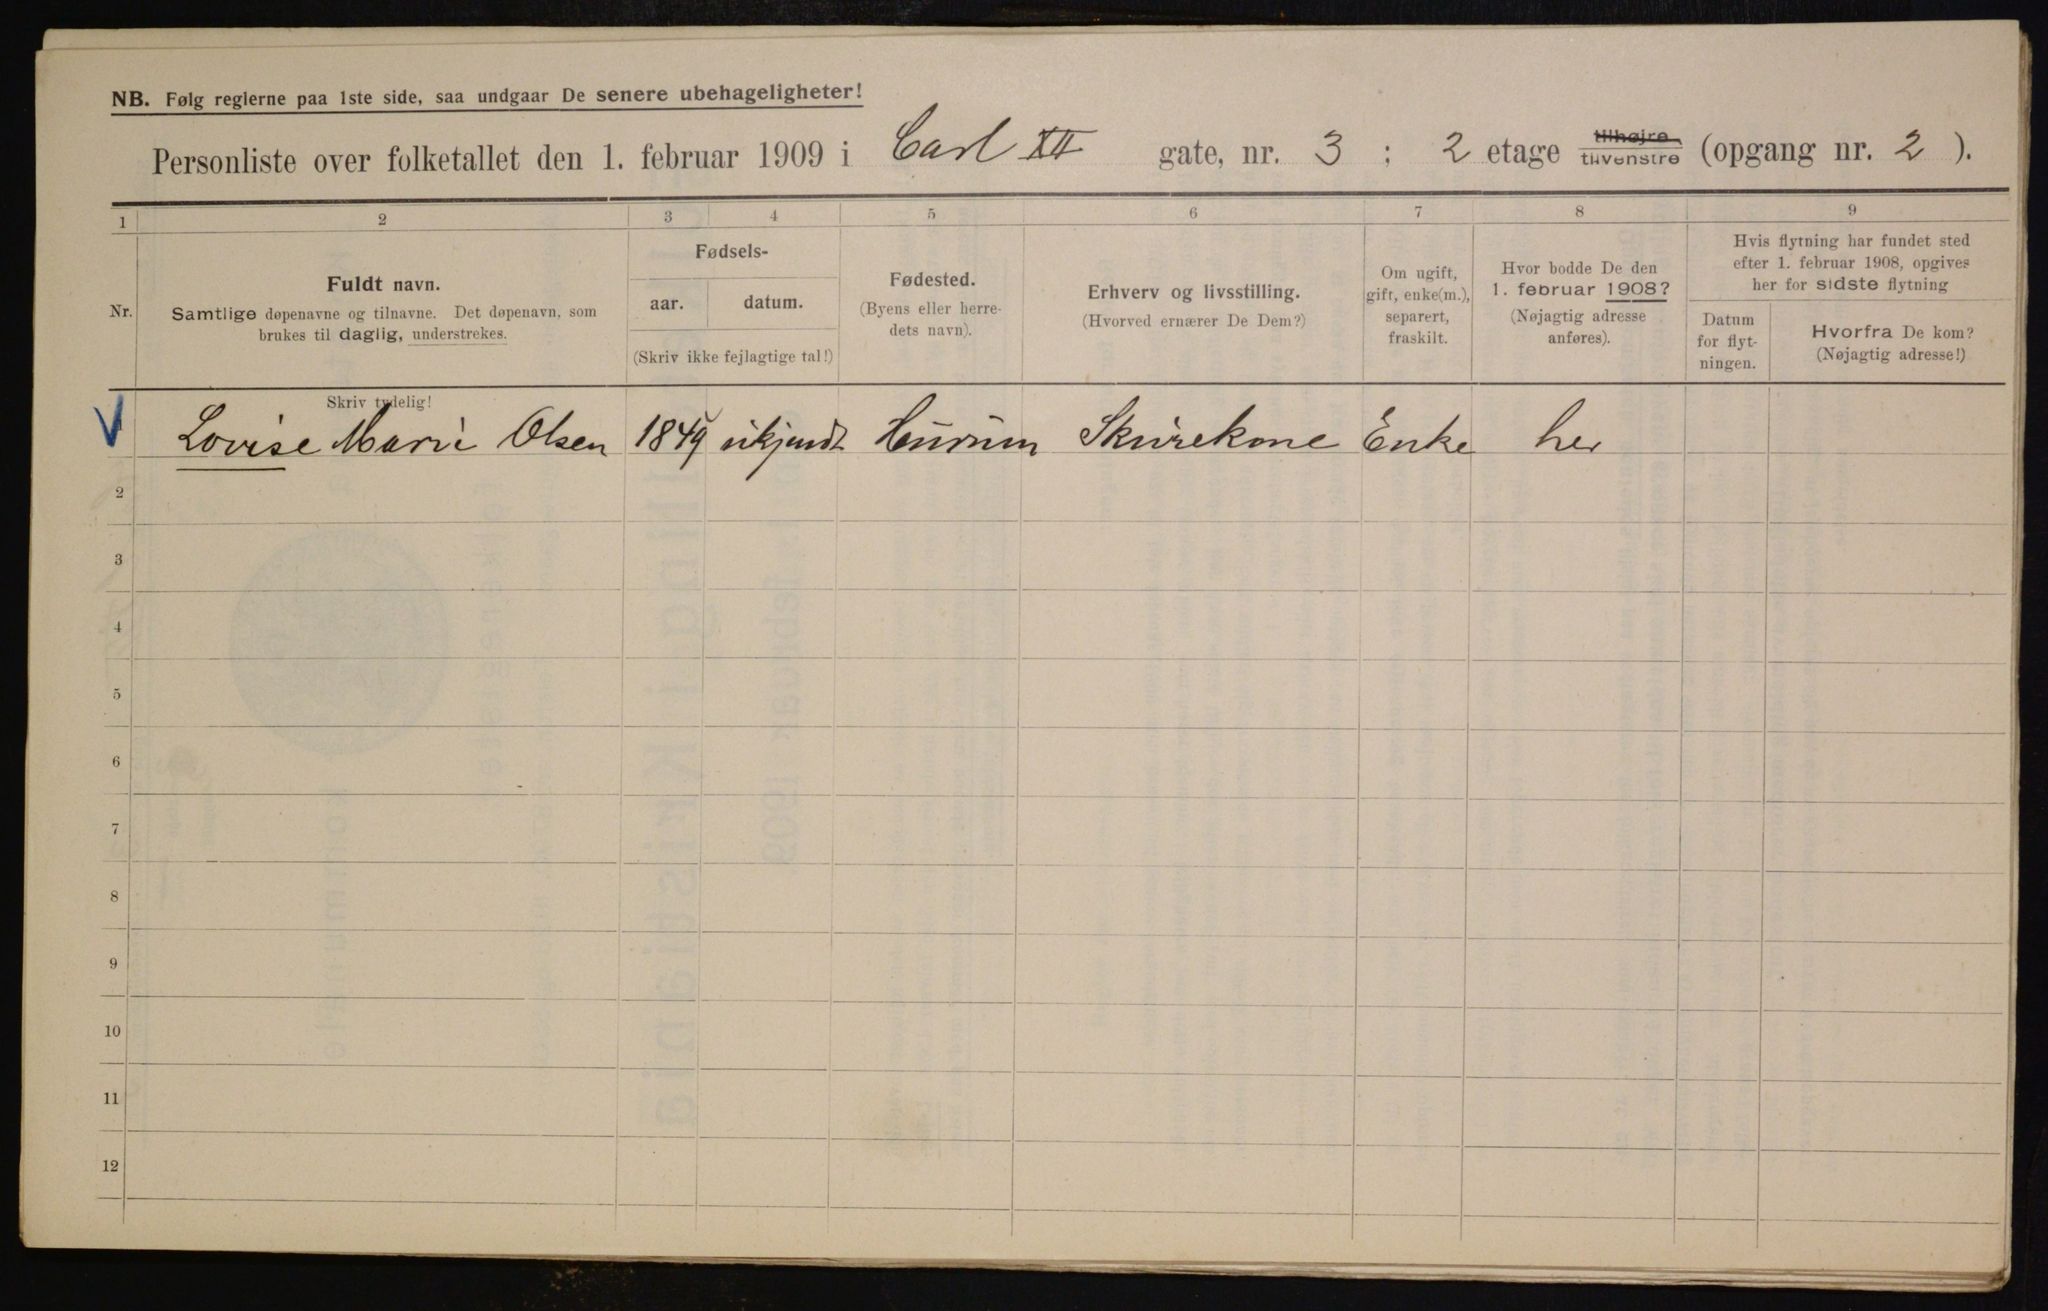 NB. Følg reglerne paa 1ste side, saa undgaar De senere ubehageligheter!
Personliste over folketallet den 1. februar 1909 i Carl XII gate, nr. 3 ; 2 etage tilhøjre tilvenstre (opgang nr. 2 ).
1 2 3 4 5 6 7 8 9
Nr.
Fuldt navn.
Samtlige døpenavne og tilnavne. Det døpenavn, som
brukes til daglig, understrekes.
Fødsels-
aar. datum.
(Skriv ikke fejlagtige tal!)
Fødested.
(Byens eller herre-
dets navn).
Erhverv og livsstilling.
(Hvorved ernærer De Dem?)
Om ugift,
gift, enke(m.),
separert,
fraskilt.
Hvor bodde De den
1. februar 1908?
(Nøjagtig adresse
anføres).
Hvis flytning har fundet sted
efter 1. februar 1908, opgives
her for sidste flytning
Datum
for flyt-
ningen.
Hvorfra De kom?
(Nøjagtig adresse!)
Skriv tydelig!
Lovise Marie Olsen 1849 ukjendt Hurum Skurekone Enke her
2
3
4
5
6
7
8
9
10
11
12